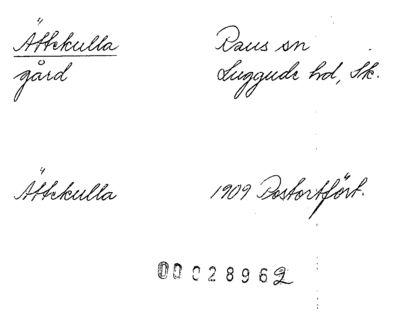 Ättekulla Raus sn
gård Luggude hd, Sk.
Ättekulla 1909 Postortfört.
00028962